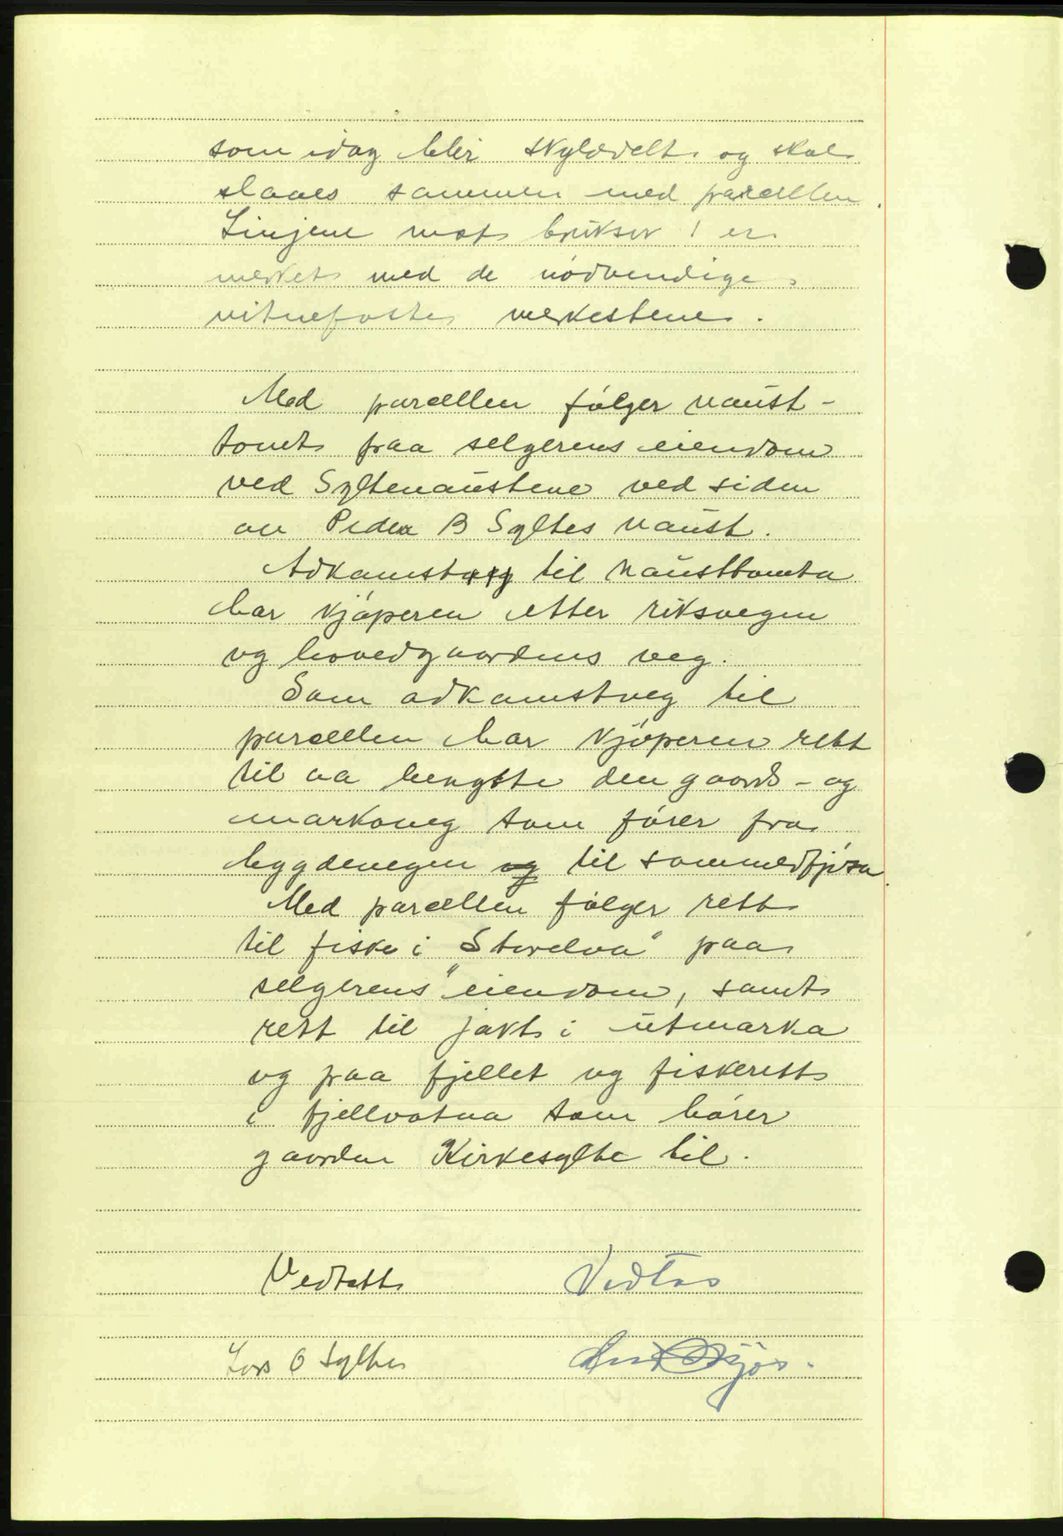 som idag blir skylddelt og skal
slaaes sammen med parcellen.
Linjene mot bruksnr 1 er
merket med de nödvendige
vitnefaste merkestene.
Med parcellen fölger naust-
tomt paa selgerens eiendom
ved Syltenaustene ved siden
av Peder B Syltes naust.
Adkamstveg til nausttomta
har kjöperen etter riksvegen
og hovedgaardens veg.
Som adkamstveg til
parcellen har kjöperen rett
til aa benytte den gaards- og
markaveg som förer fra
bygdevegen og til sommerfjösa.
Med parcellen fölger rett
til fiske i "Storelva" paa
selgerens eiendom, samt
rett til jakt i utmarka
og paa fjellet og fiskerett
i fjellvatna som hörer
gaarden Kirkesylte til.
Vedtatt Vedtas
Lars O Sylte